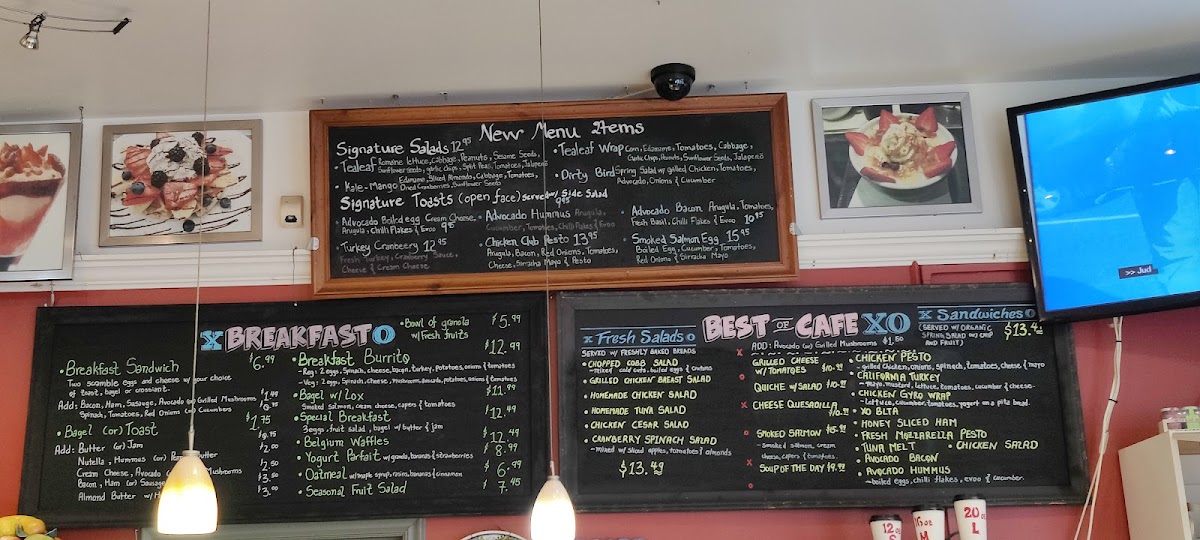 New Menu Items
Signature Salads 12.95
• Tealeaf Romaine Lettuce, Cabbage, Peanuts, Sesame Seeds,
Sunflower seeds, garlic chips, Split Peas, Tomatoes, Jalapeño
• Kale-Mango Edamame, Sliced Almonds, Cabbage, Tomatoes,
Dried Cranberries, Sunflower Seeds
• Tealeaf Wrap Corn, Edamame, Tomatoes, Cabbage,
Garlic Chips, Peanuts, Sunflower Seeds, Jalapeño
• Dirty Bird Spring Salad w/ grilled Chicken, Tomatoes,
Advocado, Onions & Cucumber
Signature Toasts (open face) Served w/ Side Salad
• Advocado Boiled egg Cream Cheese,
Arugula, Chilli Flakes & Evoo 9.85
• Turkey Cranbeery 12.95
Fresh Turkey, Cranberry Sauce,
Cheese & Cream Cheese
9.85
• Advocado Hummus Arugula,
Cucumber, Tomatoes, Chilli Flakes & Evoo
• Chicken Club Pesto 13.95
Arugula, Bacon, Red Onions, Tomatoes,
Cheese, Sirracha Mayo & Pesto
• Advocado Bacon Arugula, Tomatoes,
Fresh Basil, Chilli Flakes & Evoo 10.95
• Smoked Salmon Egg 15.95
Boiled Egg, Cucumber, Tomatoes,
Red Onions & Sirracha Mayo
X BREAKFAST O
• Breakfast Sandwich $6.99
Two scramble eggs and cheese w/ your choice
of toast, bagel or croissant.
Add: Bacon, Ham, Sausage, Avocado or Grilled Mushrooms $1.49
Spinach, Tomatoes, Red Onions or Cucumbers
• Bagel (or) Toast $1.75
Add: Butter (or) Jam
Nutella, Hummos (or) Butter $2.00
Cream Cheese, Avocado Mushrooms $2.50
Bacon, Ham (or) Sausage
Almond Butter w/ $3.00
• Bowl of granola $5.99
w/ Fresh fruits
• Breakfast Burrito $12.99
- Reg: 2 eggs, Spinach, cheese, bacon, turkey, potatoes, onions & tomatoes
- Veg: 2 eggs, Spinach, cheese, Mushroom, avocado, potatoes, onions & tomatoes
• Bagel w/ Lox $11.99
Smoked Salmon, cream cheese, capers & tomatoes
• Special Breakfast $12.49
3 eggs, fruit salad, bagel w/ butter & jam
• Belgium Waffles $12.49
• Yogurt Parfait w/ granola, bananas & strawberries $8.99
• Oatmeal w/ maple syrup, rasins, bananas & cinnamon $6.99
• Seasonal Fruit Salad $7.45
BEST OF CAFE XO
ADD: Avocado (or) Grilled Mushrooms $1.50
x Fresh Salads o
SERVED W/ FRESHLY BAKED BREADS
• CHOPPED COBB SALAD
- mixed cold cuts, boiled eggs & croutons
• GRILLED CHICKEN BREAST SALAD
• HOMEMADE CHICKEN SALAD
• HOMEMADE TUNA SALAD
• CHICKEN CESAR SALAD
• CRANBERRY SPINACH SALAD
- mixed w/ sliced apples, tomatoes & almonds
$13.49
x GRILLED CHEESE
w/ TOMATOES
o QUICHE w/ SALAD
x CHEESE QUESADILLA
o SMOKED SALMON
- smoked salmon, cream
cheese, capers & tomatoes.
x SOUP OF THE DAY
x Sandwiches o
(SERVED W/ ORGANIC
SPRING SALAD OR CHIP
AND FRUIT)
$13.49
• CHICKEN PESTO
- grilled chicken, onions, spinach, tomatoes, cheese & mayo
• CALIFORNIA TURKEY
- mayo, mustard, lettuce, tomatoes, cucumber & cheese
• CHICKEN GYRO WRAP
- lettuce, cucumber, tomatoes, yogurt on a pita bread.
• XO BLTA
• HONEY SLICED HAM
• FRESH MOZZARELLA PESTO
• TUNA MELT • CHICKEN SALAD
• AVOCADO BACON
• AVOCADO HUMMUS
- boiled eggs, chili flakes, evoo & cucumber.
>> Jud
12 oz
S
16 oz
M
20 oz
L